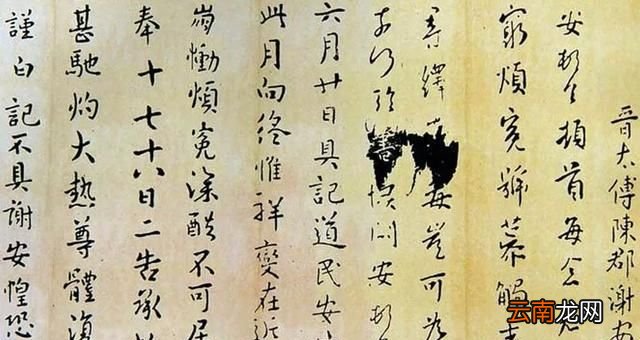 晋太傅陳郡謝安
安頓首頓首每念君
窮煩冤號慕觸事
尋繹 毒豈可為
奈何臨書損悶安頓
六月廿日具記道民安
此月向終惟祥變在近
崩慟煩冤深酷不可居
奉十七十六日二告承
甚馳灼大熱尊體復
謹白記不具謝安惶恐
云南龙网